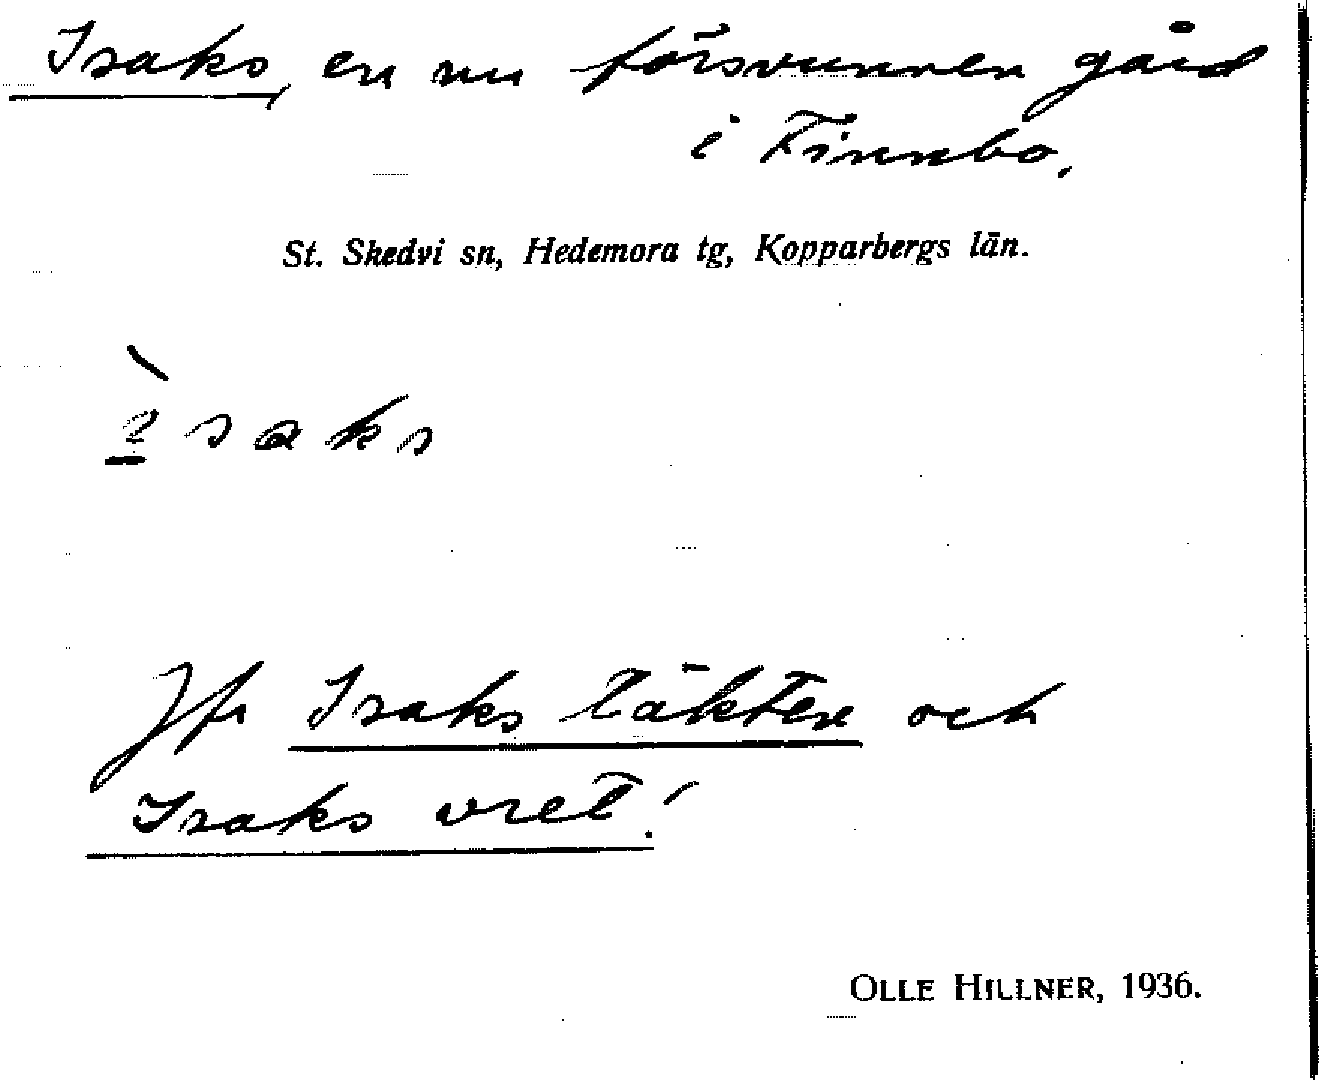 Isaks, en nu försvunnen gård
i Finnbo.
St. Skedvi sn, Hedemora tg, Kopparbergs län.
saks
Jfr Isaks täkten och
Isaks vret!
OLLE HILLNER, 1936.